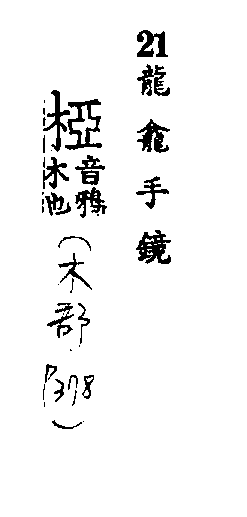 21 龍龕手鏡
椏 音鴉木也
(木部 P378)